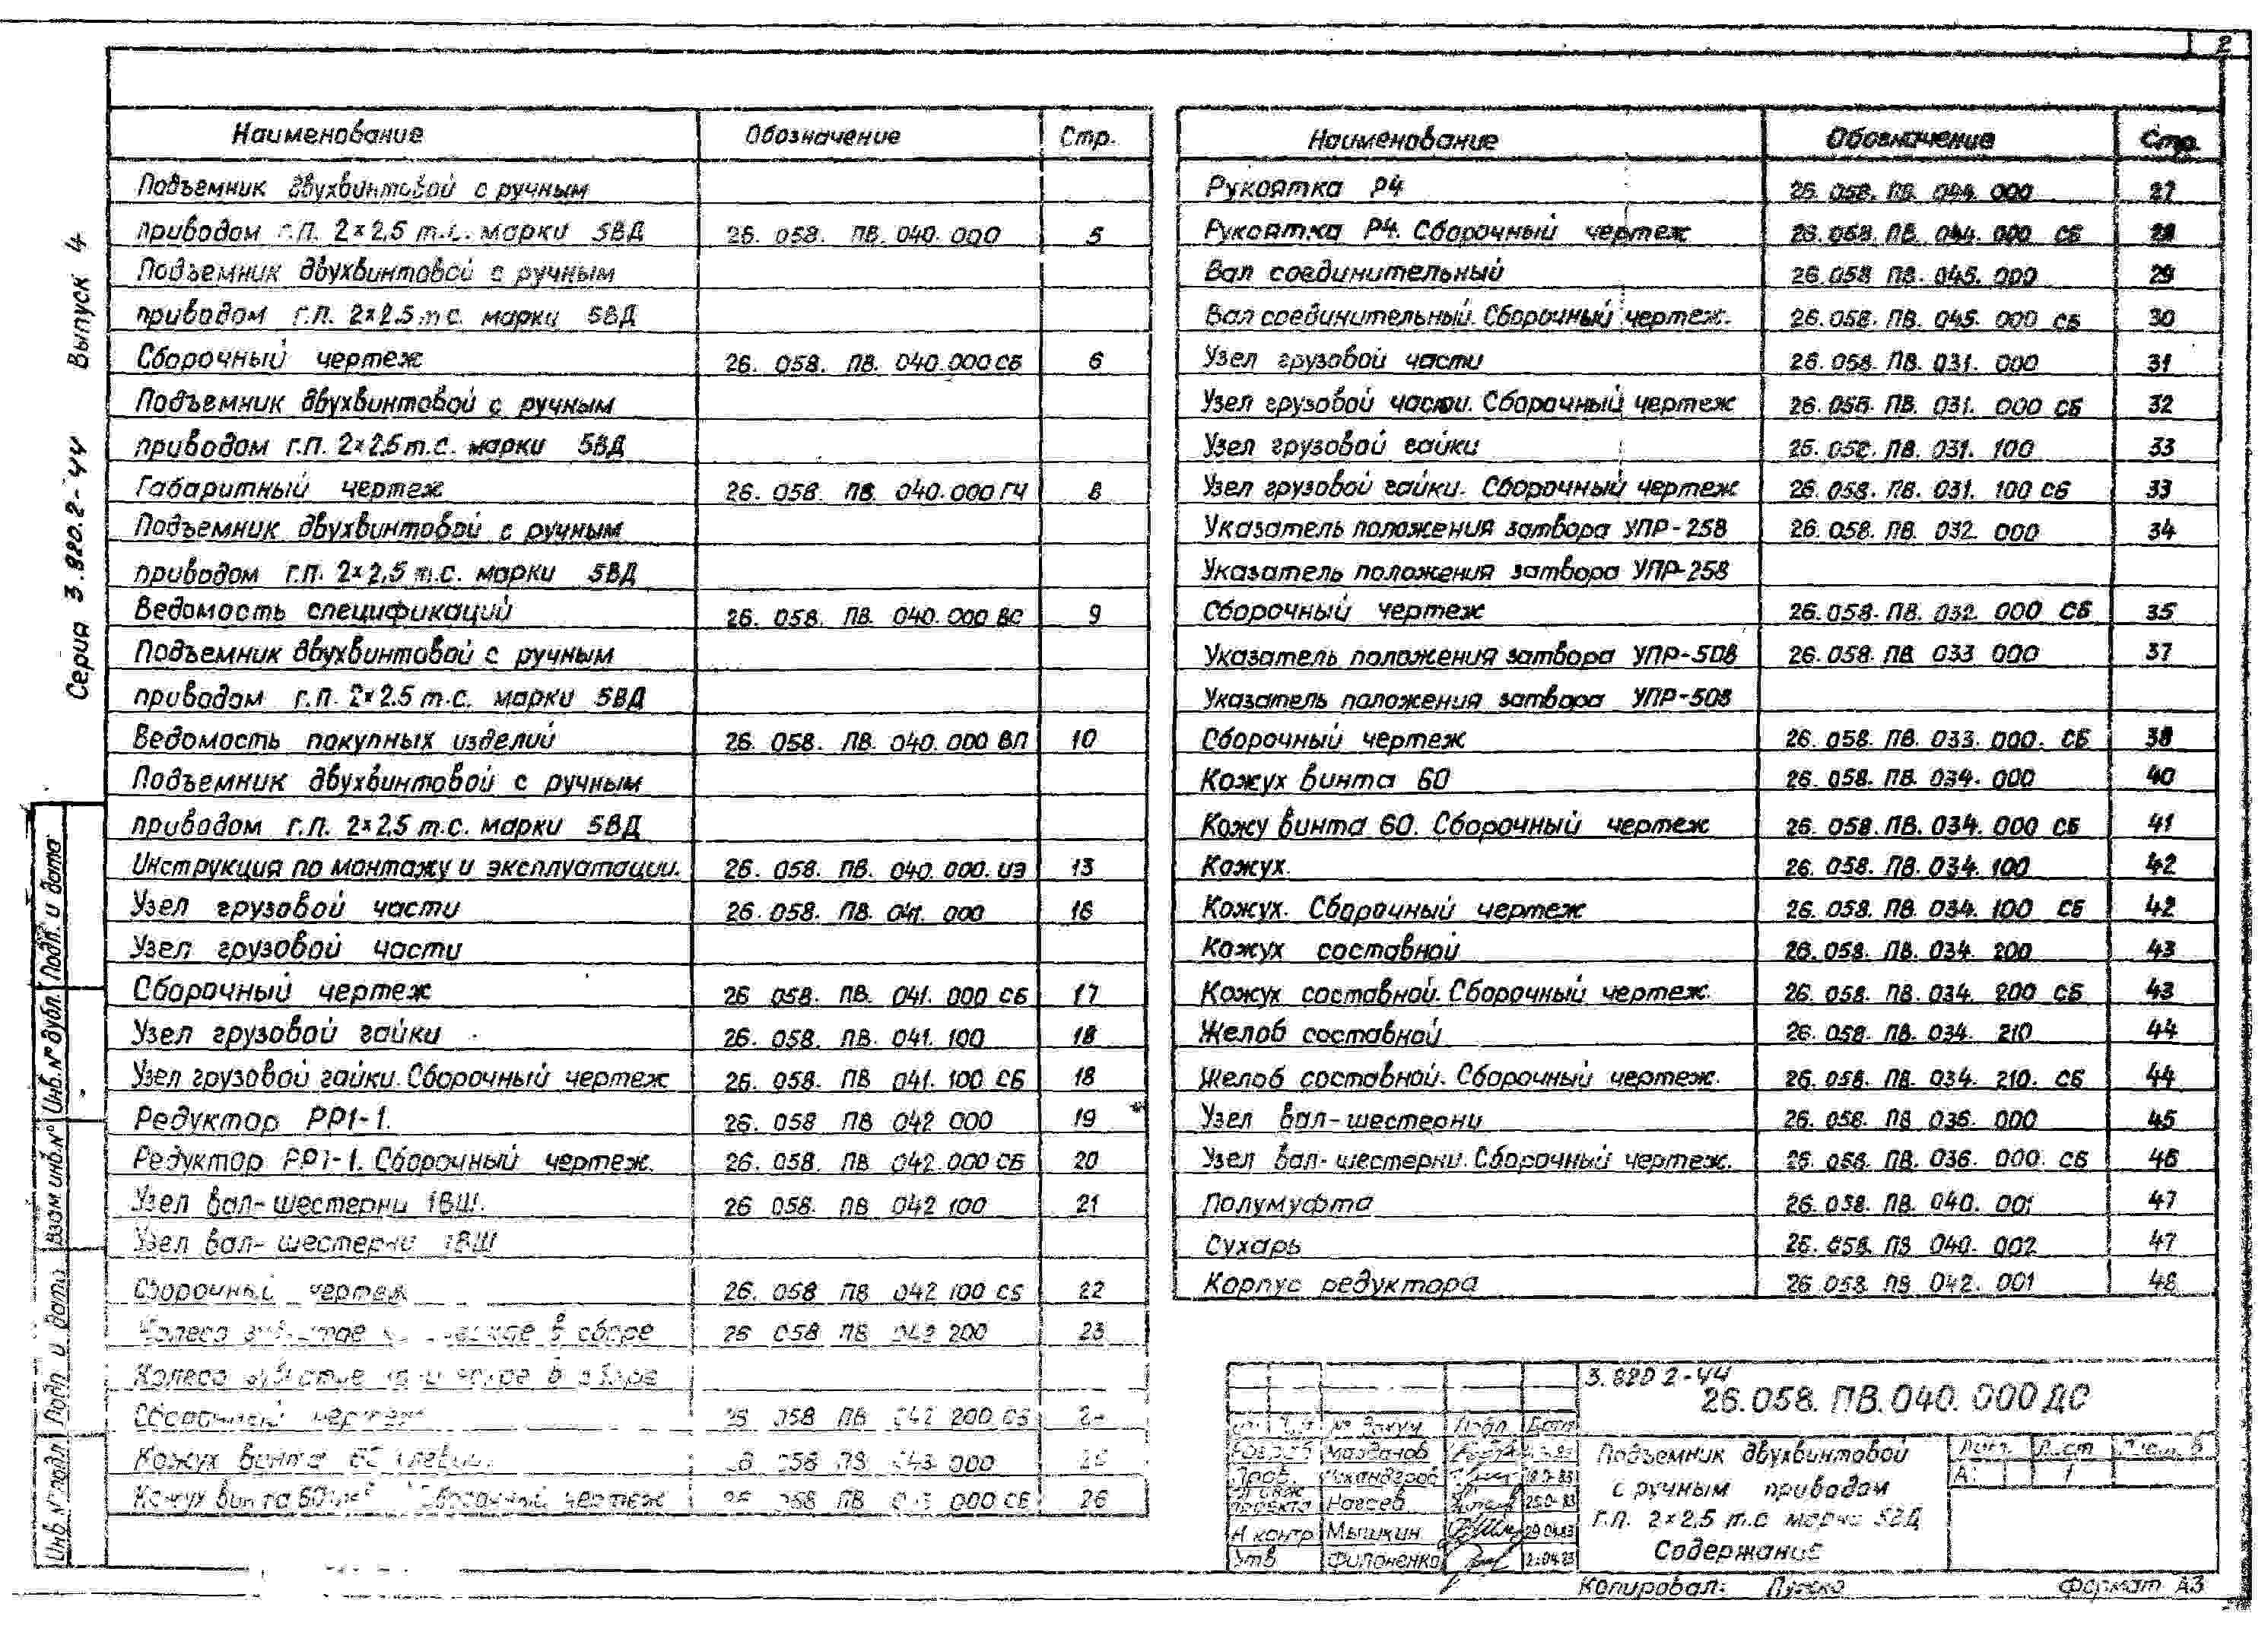 2
Серия 3.820.2-44 Выпуск 4
Наименование Обозначение Стр.
Подъемник двухвинтовой с ручным
приводом г.п. 2×2,5 т.с. марки 5ВД 26. 058. ПВ. 040. 000 5
Подъемник двухвинтовой с ручным
приводом г.п. 2×2.5 т.с. марки 5ВД
Сборочный чертеж 26. 058. ПВ. 040. 000 СБ 6
Подъемник двухвинтовой с ручным
приводом г.п. 2×2.5 т.с. марки 5ВД
Габаритный чертеж 26. 058. ПВ. 040. 000 ГЧ 8
Подъемник двухвинтовой с ручным
приводом г.п. 2×2,5 т.с. марки 5ВД
Ведомость спецификаций 26. 058. ПВ. 040. 000 ВС 9
Подъемник двухвинтовой с ручным
приводом г.п. 2×2.5 т.с. марки 5ВД
Ведомость покупных изделий 26. 058. ПВ. 040. 000 ВП 10
Подъемник двухвинтовой с ручным
приводом г.п. 2×2,5 т.с. марки 5ВД
Инструкция по монтажу и эксплуатации. 26. 058. ПВ. 040. 000. ИЭ 13
Узел грузовой части 26. 058. ПВ. 041. 000 16
Узел грузовой части
Сборочный чертеж 26 058. ПВ. 041. 000 СБ 17
Узел грузовой гайки 26. 058. ПВ. 041. 100 18
Узел грузовой гайки. Сборочный чертеж 26. 058. ПВ 041. 100 СБ 18
Редуктор РР1-1. 26. 058 ПВ 042 000 19
Редуктор РР1-1. Сборочный чертеж. 26. 058. ПВ 042. 000 СБ 20
Узел вал-шестерни 1ВШ. 26 058. ПВ 042 100 21
Узел вал-шестерни 1ВШ
Сборочный чертеж 26. 058 ПВ 042 100 СБ 22
Колесо в сборе 26 058 ПВ 042 200 23
Колесо в сборе
Сборочный чертеж 26 058 ПВ 042 200 СБ
Кожух винта 058 ПВ 043 000
Кожух винта Сборочный чертеж 26 058 ПВ 000 СБ 26
Наименование Обозначение Стр.
Рукоятка Р4 26. 058. ПВ. 044. 000 27
Рукоятка Р4. Сборочный чертеж 26. 058. ПВ. 044. 000 СБ 28
Вал соединительный 26. 058 ПВ. 045. 000 29
Вал соединительный. Сборочный чертеж. 26. 058. ПВ. 045. 000 СБ 30
Узел грузовой части 26. 058. ПВ. 031. 000 31
Узел грузовой части. Сборочный чертеж 26. 058. ПВ. 031. 000 СБ 32
Узел грузовой гайки 26. 058. ПВ. 031. 100 33
Узел грузовой гайки. Сборочный чертеж 26. 058. ПВ. 031. 100 СБ 33
Указатель положения затвора УПР-258 26. 058. ПВ. 032. 000 34
Указатель положения затвора УПР-258
Сборочный чертеж 26. 058. ПВ. 032. 000 СБ 35
Указатель положения затвора УПР-508 26. 058. ПВ 033 000 37
Указатель положения затвора УПР-508
Сборочный чертеж 26. 058. ПВ. 033. 000. СБ 38
Кожух винта 60 26. 058. ПВ. 034. 000 40
Кожу винта 60. Сборочный чертеж 26. 058. ПВ. 034. 000 СБ 41
Кожух. 26. 058. ПВ. 034. 100 42
Кожух. Сборочный чертеж 26. 058. ПВ. 034. 100 СБ 42
Кожух составной 26. 058. ПВ. 034. 200 43
Кожух составной. Сборочный чертеж. 26. 058. ПВ. 034. 200 СБ 43
Желоб составной 26. 058. ПВ. 034. 210 44
Желоб составной. Сборочный чертеж. 26. 058. ПВ. 034. 210. СБ 44
Узел вал-шестерни 26. 058. ПВ 036. 000 45
Узел вал-шестерни. Сборочный чертеж. 26. 058. ПВ. 036. 000. СБ 46
Полумуфта 26. 058. ПВ. 040. 001 47
Сухарь 26. 058. ПВ 040. 002 47
Корпус редуктора 26. 058. ПВ 042. 001 48
Инв.№ подл Подп и дата Взам инв.№ Инв.№ дубл. Подп. и дата
3.820 2-44
26.058. ПВ.040. 000 ДС
№ докум Подп. Дата
Разраб
Пров.
проекта Нагаев
Н контр Мышкин 29.04.83
Утв Филоненко
Подъемник двухвинтовой
с ручным приводом
г.п. 2×2,5 т.с марки 5ВД
Содержание
Лит. Лист Листов
А 1
Копировал: Формат А3